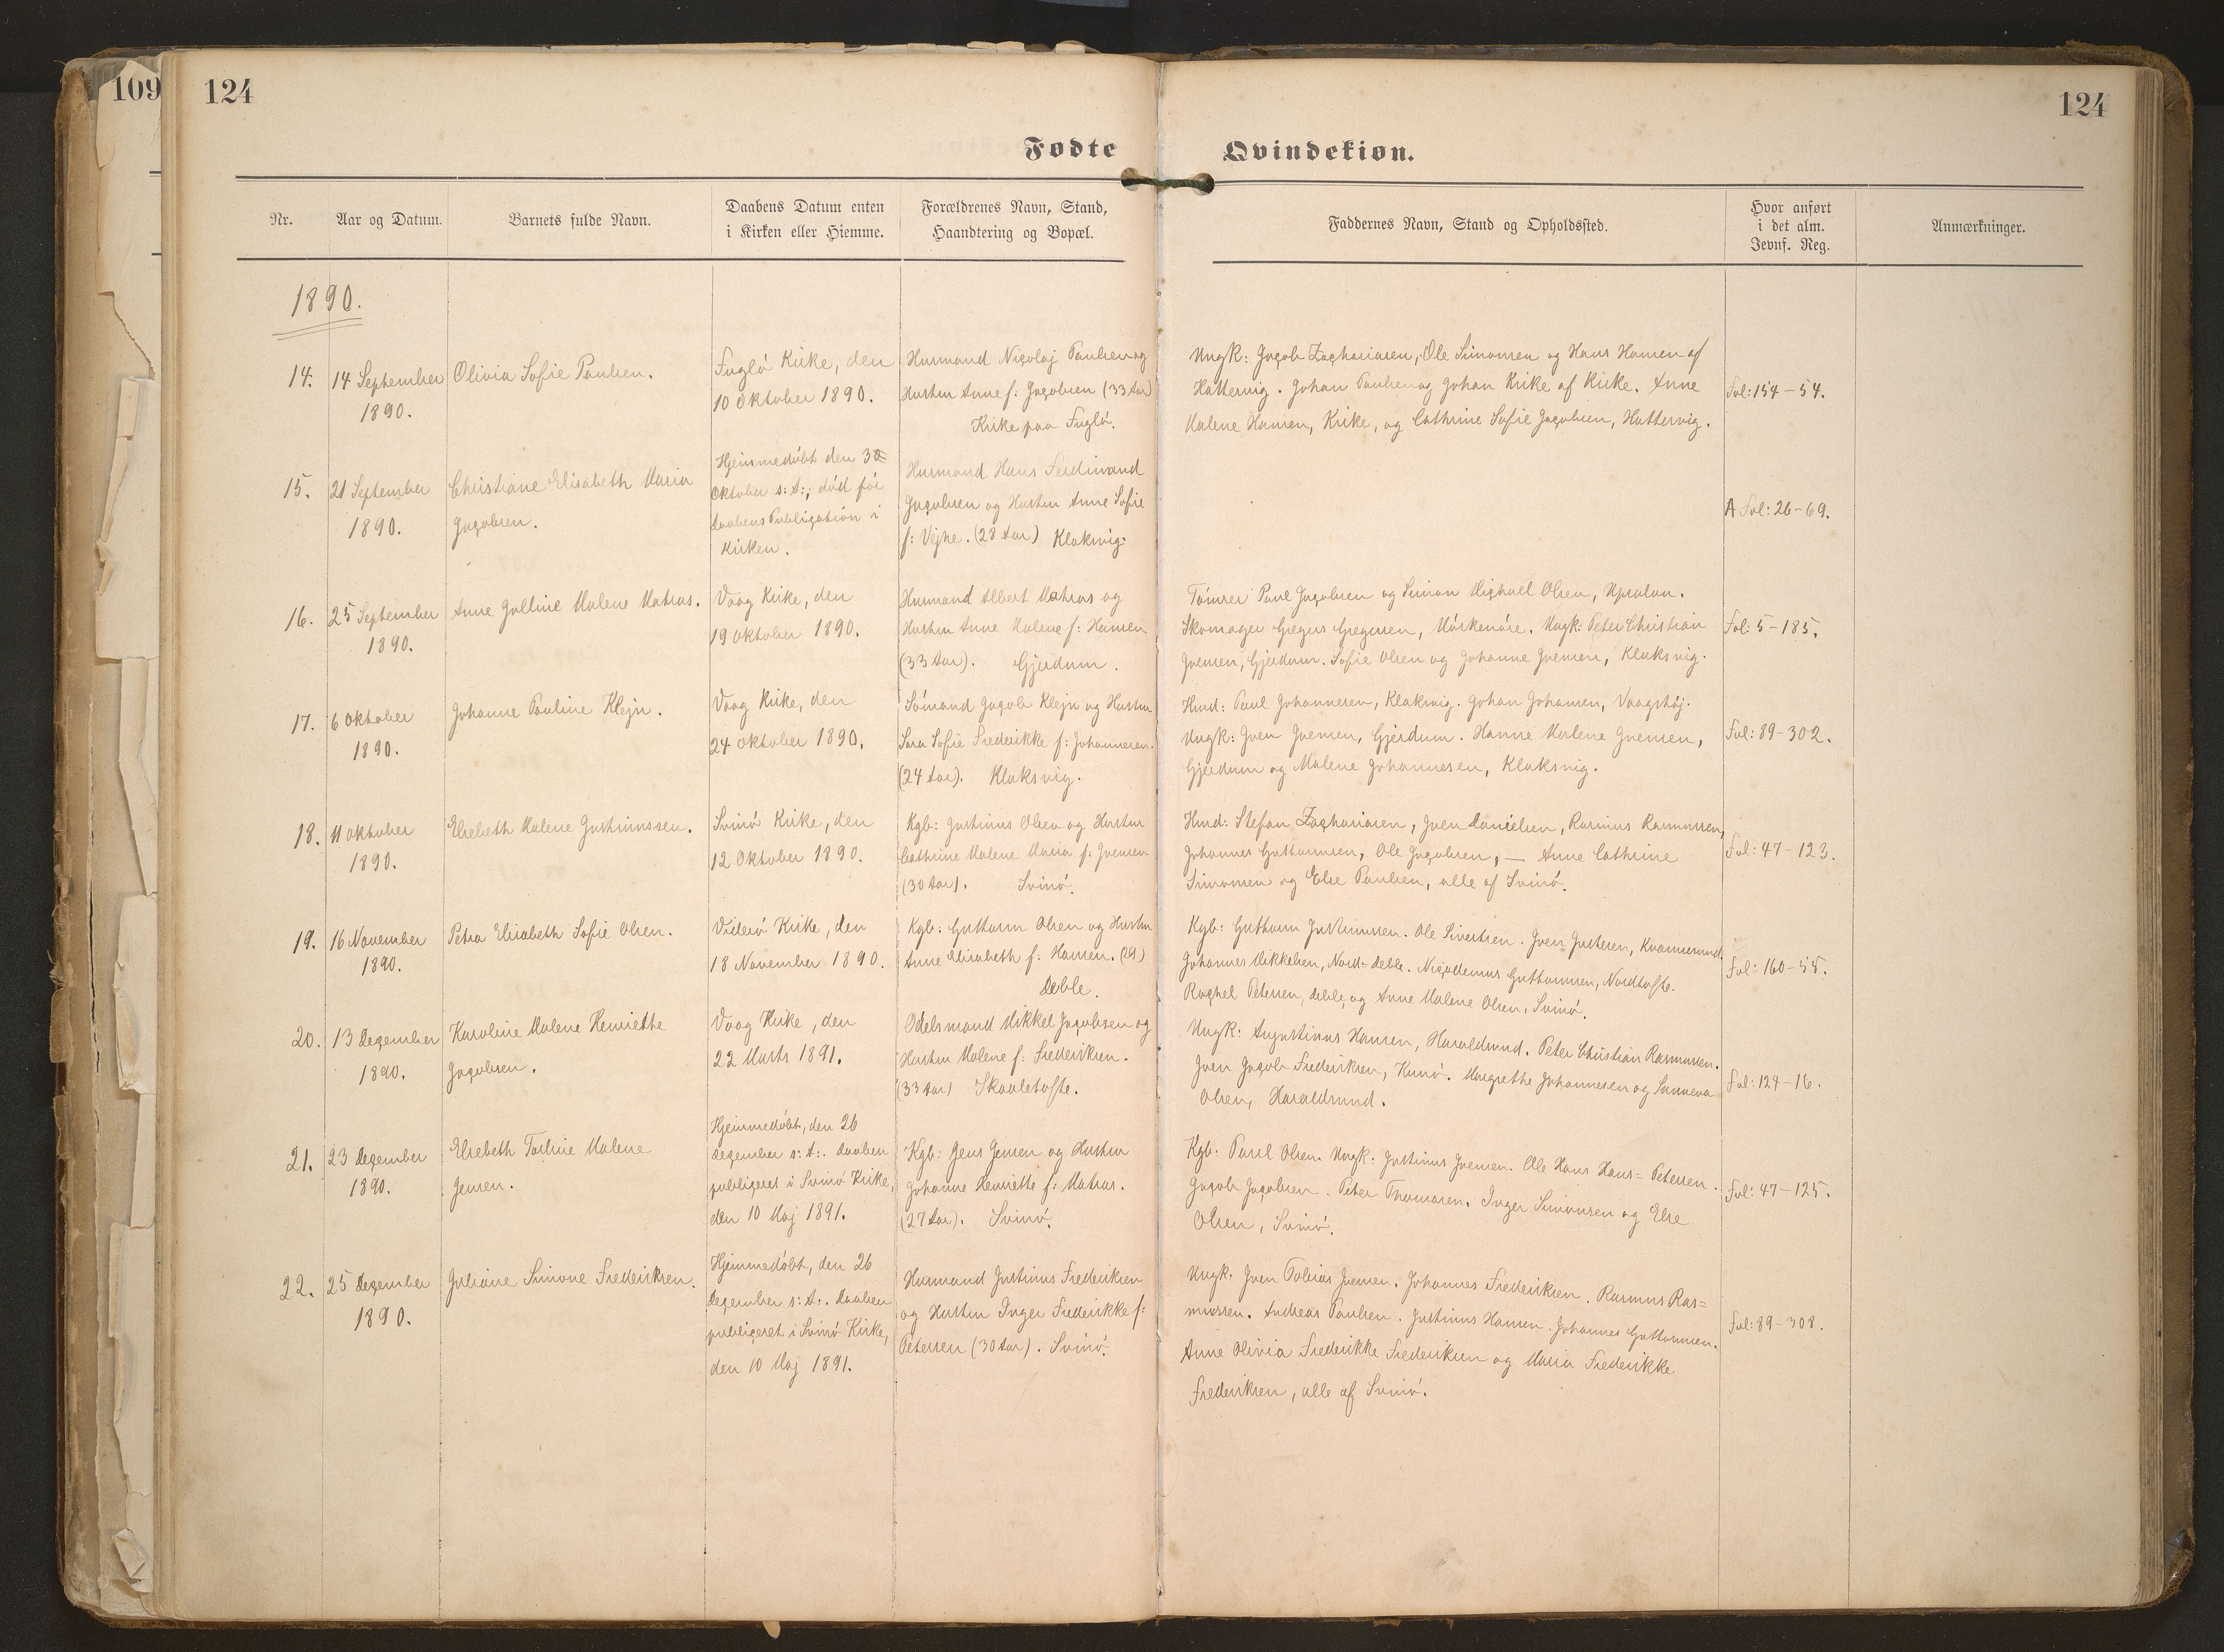 109
124
124
Fødte
Qvindekiøn.
Nr.
Aar og Datum.
Barnets fulde Navn.
Daabens Datum enten
i Kirken eller Hiemme.
Forældrenes Navn, Stand,
Haandtering og Bopæl.
Faddernes Navn, Stand og Opholdssted.
Hvor anført
i det alm.
Jevnf. Reg.
Anmærkninger.
1890.
14.
14 September
1890.
Olivia Sofie Paulsen.
Fuglö Kirke, den
10 Oktober 1890.
Husmand Niçolaj Paulsen og
Hustru Anne f: Jaçobsen (33 Aar)
Kirke paa Fuglö.
Ungk: Jaçob Zaçhariasen, Ole Simonsen og Hans Hansen af
Hattervig. Johan Paulsen og Johan Kirke af Kirke. Anne
Malene Hansen, Kirke, og Cathrine Sofie Jaçobsen, Hattervig.
Fol: 154-54.
15.
21 September
1890.
Christiane Elisabeth Maria
Jaçobsen.
Hjemmedöbt den
Oktober s: A:, död för
Daabens Publiçation i
Kirken.
Husmand Hans Ferdinand
Jaçobsen og Hustru Anne Sofie
f: Vejhe. (28 Aar) Klaksvig.
A Fol: 26-69.
16.
25 September
1890.
Anne Malene Matras.
Vaag Kirke, den
19 Oktober 1890.
Husmand Albert Matras og
Hustru Anne Malene f: Hansen
(33 Aar). Gjerdum.
Tömrer Paul Jaçobsen og Simon Miçhael Olsen, Upsalun.
Skomager Gregers Gregersen, Mörkenöre. Ungk: Peter Christian
Jvensen, Gjerdum. Sofie Olsen og Johanne Jvensen, Klaksvig.
Fol: 5-185.
17.
6 Oktober
1890.
Johanne Pauline Klejn.
Vaag Kirke, den
24 Oktober 1890.
Sömand Jaçob Klejn og Hustru
Sara Sofie Frederikke f: Johannesen.
(24 Aar). Klaksvig.
Hmd: Paul Johannesen, Klaksvig. Johan Johansen, Vaagshöj.
Ungk: Jven Jvensen, Gjerdum. Hanne Malene Jvensen,
Gjerdum og Malene Johannesen, Klaksvig.
Fol: 89-302.
18.
11 Oktober
1890.
Elsebeth Malene Justinussen.
Svinö Kirke, den
12 Oktober 1890.
Kgb: Justinus Olsen og Hustru
Cathrine Malene Maria f: Jvensen
(30 Aar). Svinö.
Hmd: Stefan Zaçhariasen, Jven Danielsen, Rasmus Rasmussen,
Johannes Guttormsen, Ole Jaçobsen, — Anne Cathrine
Simonsen og Else Paulsen, alle af Svinö.
Fol: 47-123.
19.
16 November
1890.
Petra Elisabeth Sofie Olsen.
Viderö Kirke, den
18 November 1890.
Kgb: Guttorm Olsen og Hustru
Anne Elisabeth f: Hansen. (29)
Deble.
Kgb: Guttorm Justinussen. Ole Sivertsen. Jven Justesen, Kvannesund.
Johannes Mikkelsen, Nord=deble. Niçodemus Guttormsen, Nordtofte.
Raçhel Petersen, Deble, og Anne Malene Olsen, Svinö.
Fol: 160-55.
20.
13 Deçember
1890.
Karoline Malene Henriethe
Jaçobsen.
Vaag Kirke, den
22 Marts 1891.
Odelsmand Mikkel Jaçobsen og
Hustru Malene f: Frederiksen.
(33 Aar) Skaaletofte.
Ungk: Augustinus Hansen, Haraldsund. Peter Christian Rasmussen.
Jven Jaçob Frederiksen, Kunö. Margrethe Johannesen og Sunneva
Olsen, Haraldsund.
Fol: 124-16.
21.
23 Deçember
1890.
Elsebeth Malene
Jensen.
Hjemmedöbt, den 26
Deçember s: A:. Daaben
publiçeret i Svinö Kirke,
den 10 Maj 1891.
Kgb: Jens Jensen og Hustru
Johanne Henriette f: Matras.
(27 Aar). Svinö.
Kgb: Paul Olsen. Ungk: Justinus Jvensen. Ole Hans Hans=Petersen.
Jaçob Jaçobsen. Peter Thomasen. Inger Simonsen og Else
Olsen, Svinö.
Fol: 47-125.
22.
25 Deçember
1890.
Juliane Simone Frederiksen.
Hjemmedöbt, den 26
Deçember s: A:. Daaben
publiçeret i Svinö Kirke,
den 10 Maj 1891.
Husmand Justinus Frederiksen
og Hustru Inger Frederikke f:
Petersen (30 Aar). Svinö.
Ungk: Jven Tobias Jvensen. Johannes Frederiksen. Rasmus Ras=
mussen. Andreas Paulsen. Justinus Hansen. Johannes Guttormsen.
Anne Olivia Frederikke Frederiksen og Maria Frederikke
Frederiksen, alle af Svinö.
Fol: 89-308.